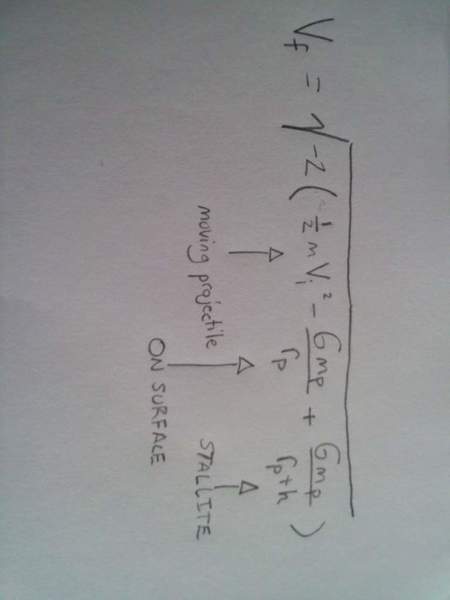 V_f = √(-2(½ m V_i² - Gm_p/r_p + Gm_p/(r_p+h)))
moving projectile
ON SURFACE
STALLITE